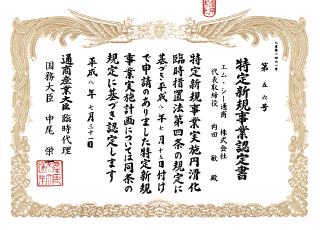 特定新規事業認定書
第 五 六 号
エム・シー通商 株式会社
代表取締役 向田 敏 殿
特定新規事業実施円滑化
臨時措置法第四条の規定に
基づき平成八年七月十五日付け
で申請のありました特定新規
事業実施計画については同条の
規定に基づき認定します
平成八年 七月三十一日
通商産業大臣 臨時代理
国務大臣 中尾 栄